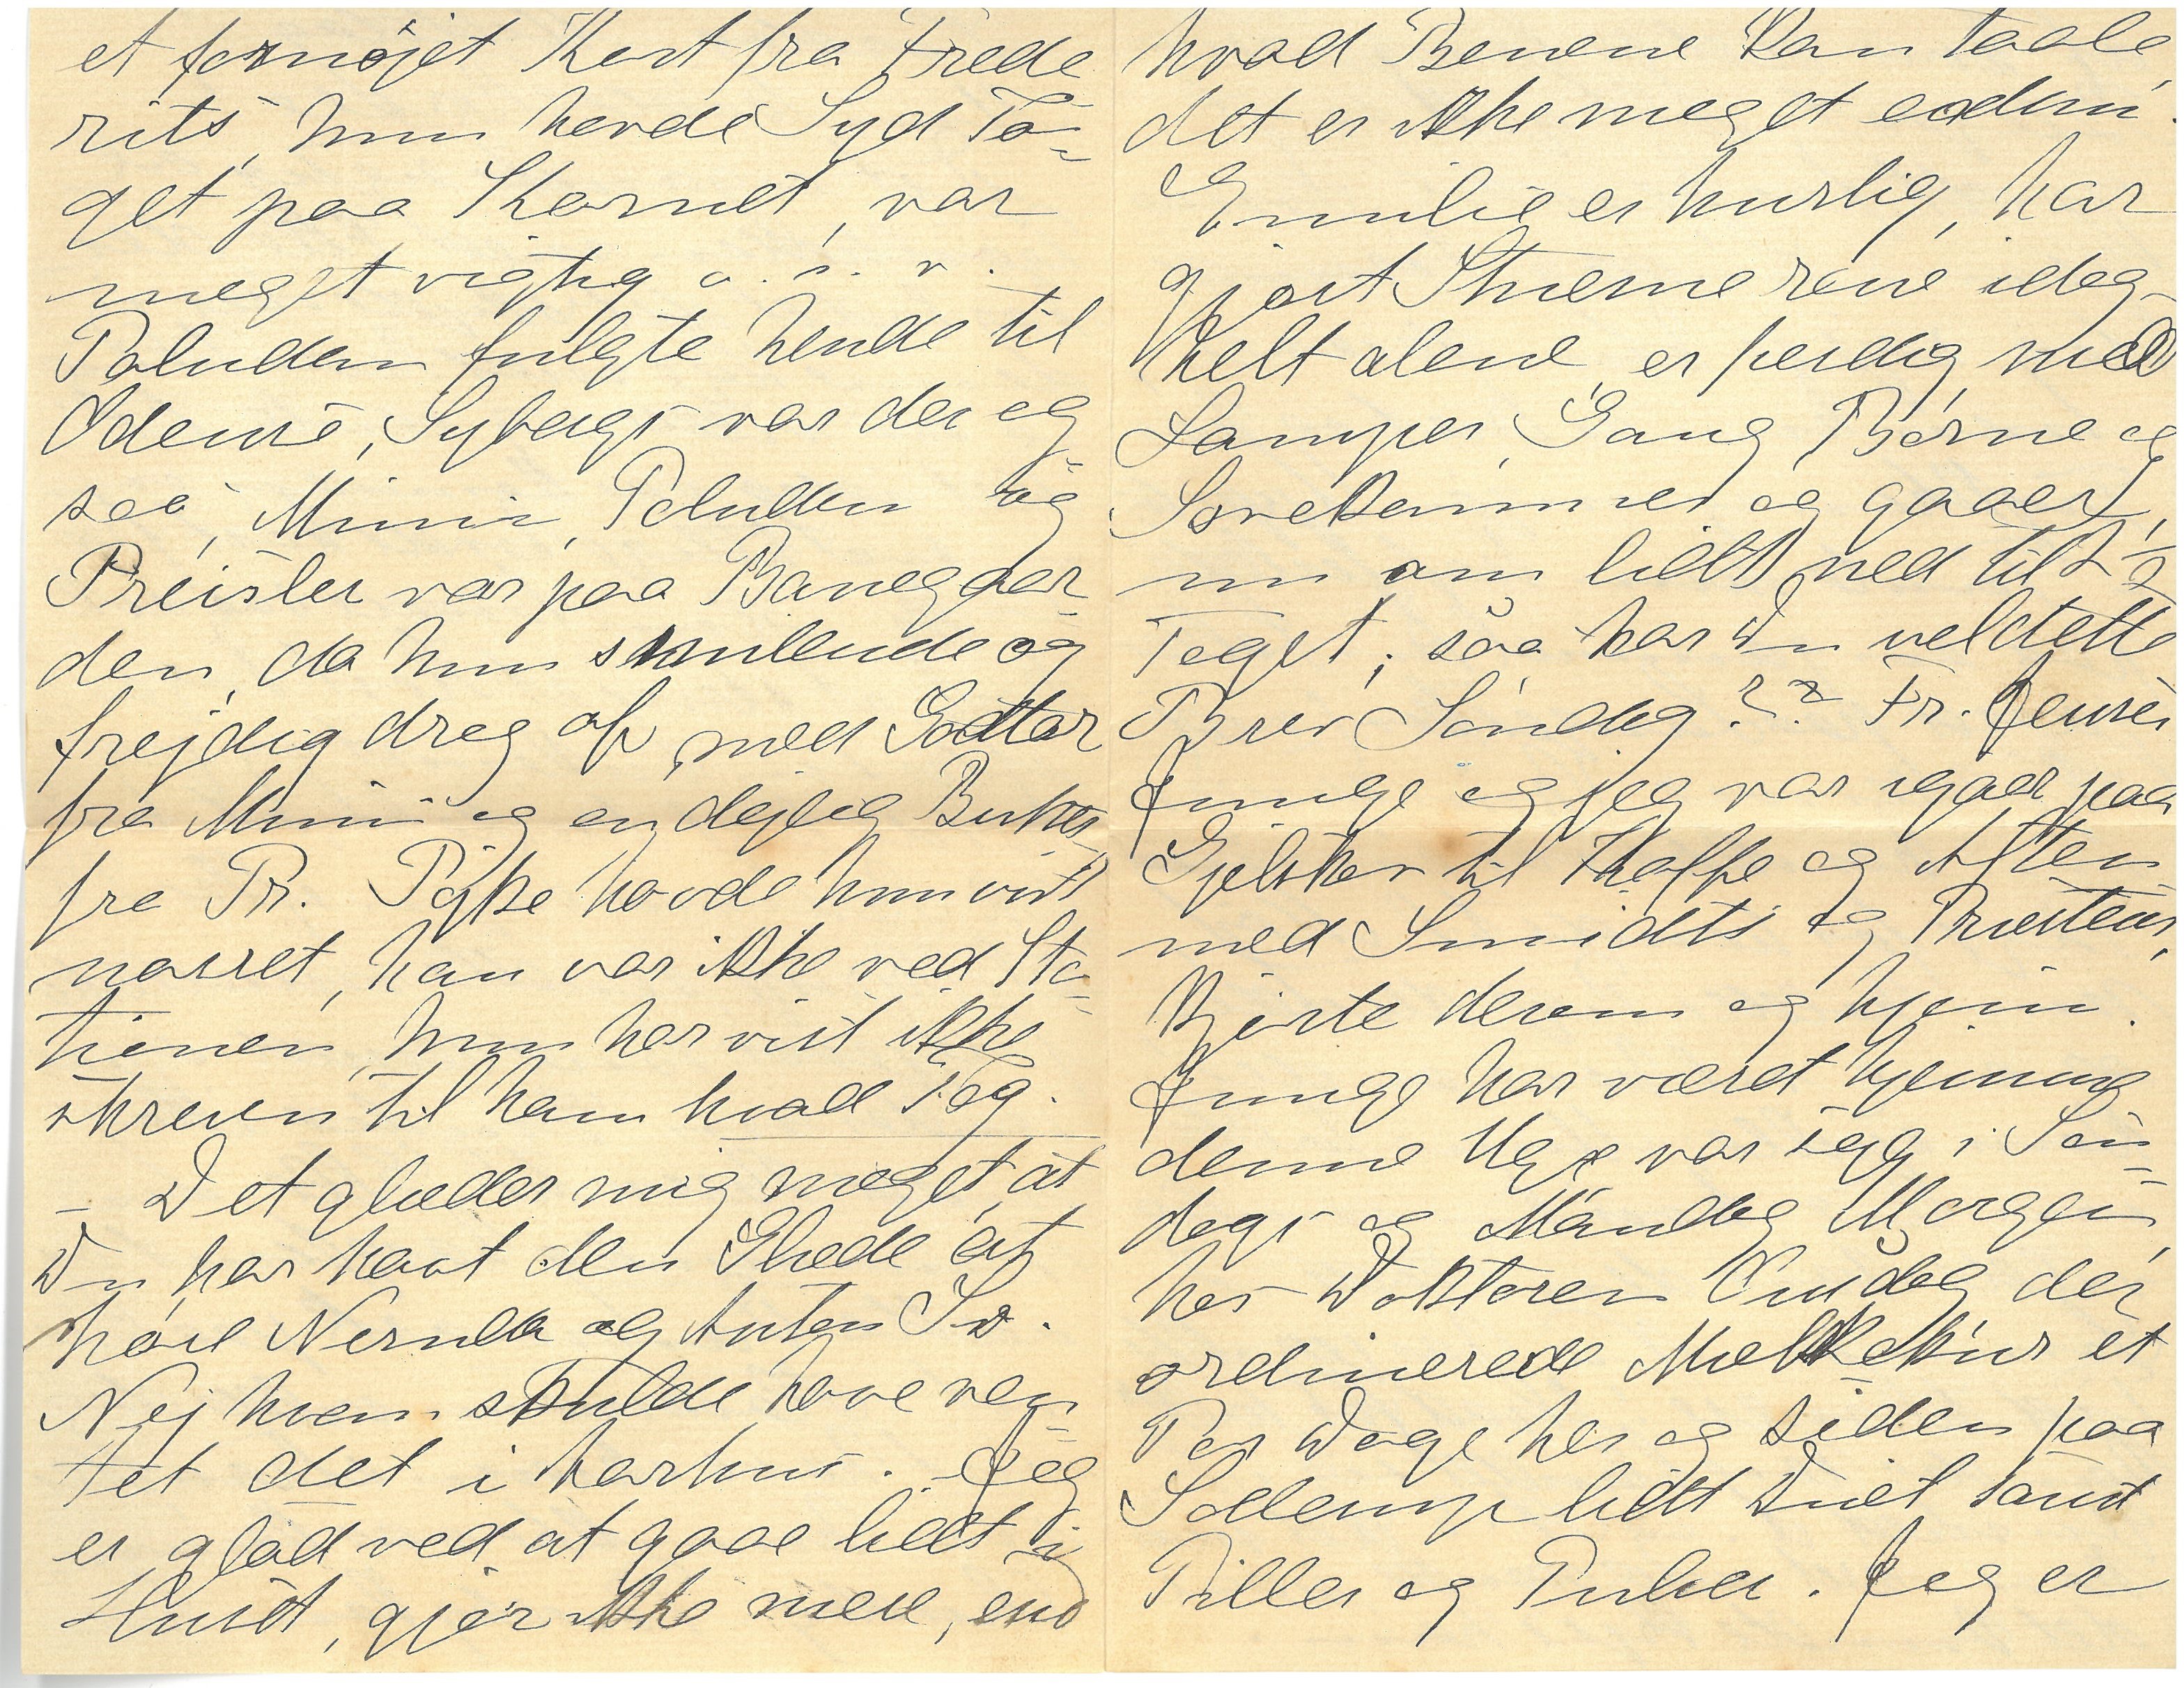 et fornøjet Kort fra Frede
rits, hun havde Syd To=
get paa Kornet, var
meget vigtig o. s. v.
Paludan fulgte hende til
Odense, Sybergs var der og
saa, Mimi, Paludan og
Preisler var paa Banegaar
den, da hun smilende og
frejdig drog af, med Godter
fra Mimi og en dejlig Buket
fra Pr. Pipke havde hun vist
narret, han var ikke ved Sta=
tionen, hun har vist ikke
skreven til ham hvad Tog.
– Det glæder mig meget, at
Du har havt den Glæde at
høre Neruda og Anton Sv.
Nej hvem skulde have ven
tet det i Aarhus. Jeg
er glad ved at gaae lidt i
Huset, gjør ikke mere, end
hvad Benene kan taale
det er ikke meget endnu.
Emilie er hurlig, har
gjort Stuerne rene idag
helt alene, er færdig med
Lamper, Gang Børne og
Sovekammer og gaaer
nu om lidt ned til 2½
Toget, saa har Du vel dette
Brev Søndag?? Fr. Jensen
Junge og jeg var igaar paa
Gjelskov til Kaffe og Aften
med Smidts og Præstens,
Kjørte derom og hjem.
Junge har været hjemme
denne Uge var syg i Søn=
dags og Mandag Morgen,
hos Doktoren Onsdag der
ordinerede Mælkekur et
Par Dage her og siden paa
Sollerup lidt Diet samt
Piller og Pulver. Jeg er